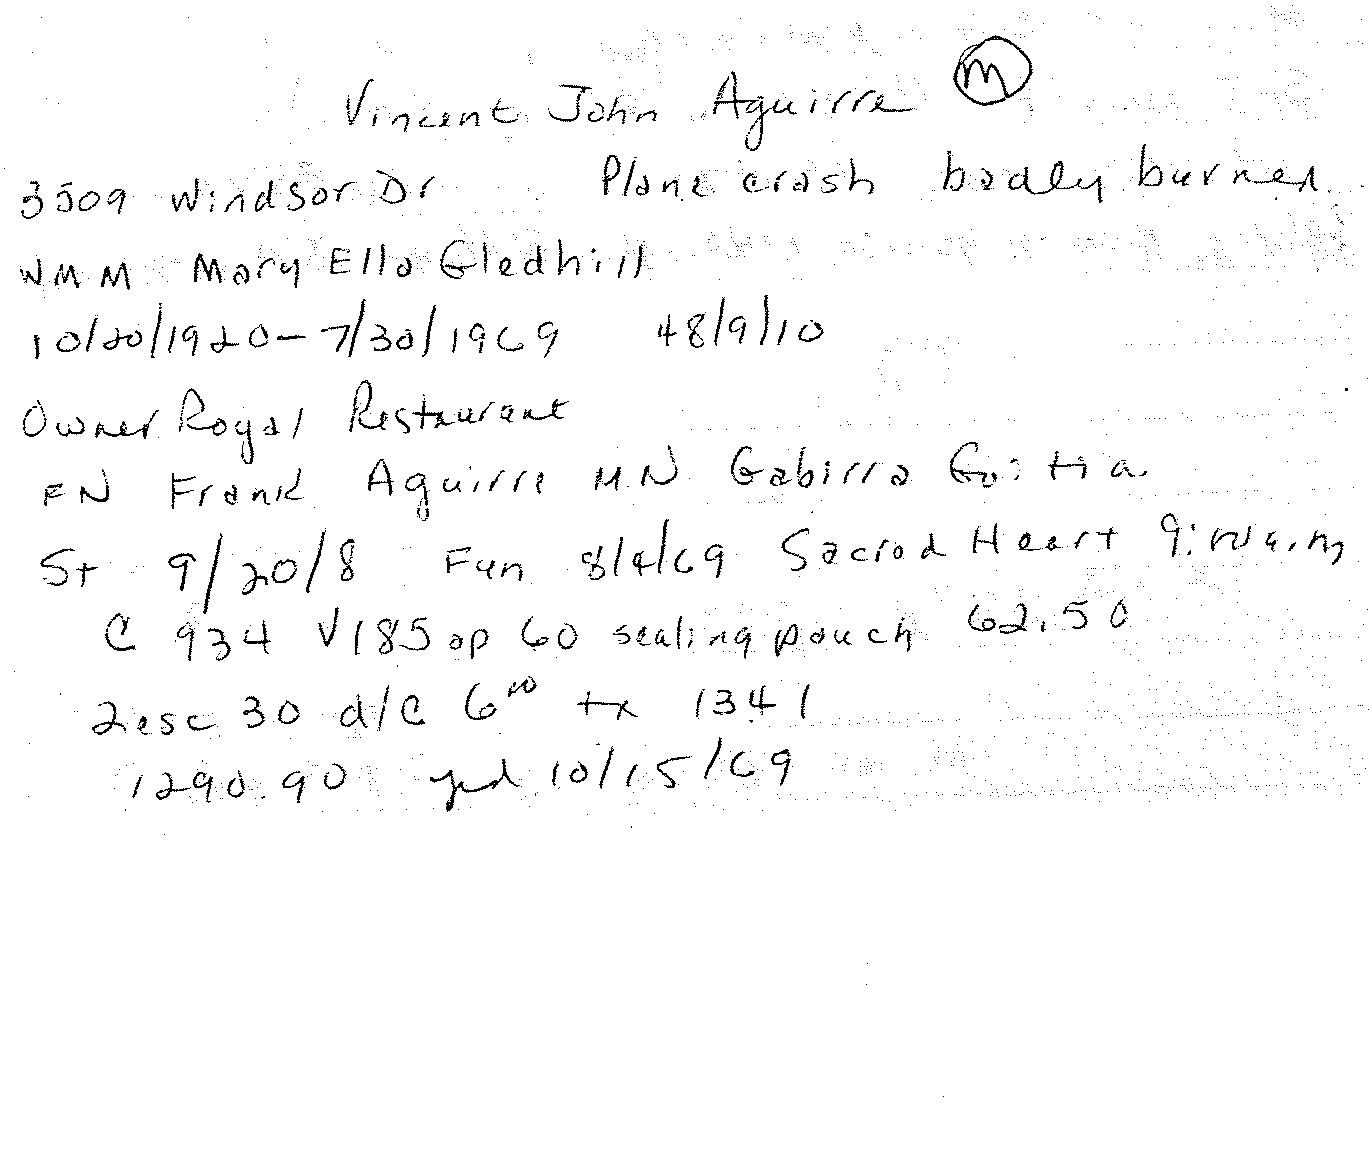 Vincent John Aguirre M
3509 Windsor Dr Plane crash badly burned
WMM Mary Ella Gledhill
10/20/1920 - 7/30/1969 48/9/10
Owner Royal Restaurant
FN Frank Aguirre MN Gabirra Goitia
St 9/20/8 Fun 8/4/69 Sacred Heart a.m
C 934 V185 op 60 sealing pouch 62.50
2esc 30 d/c 6⁰⁰ tx 1341
1290.90 pd 10/15/69